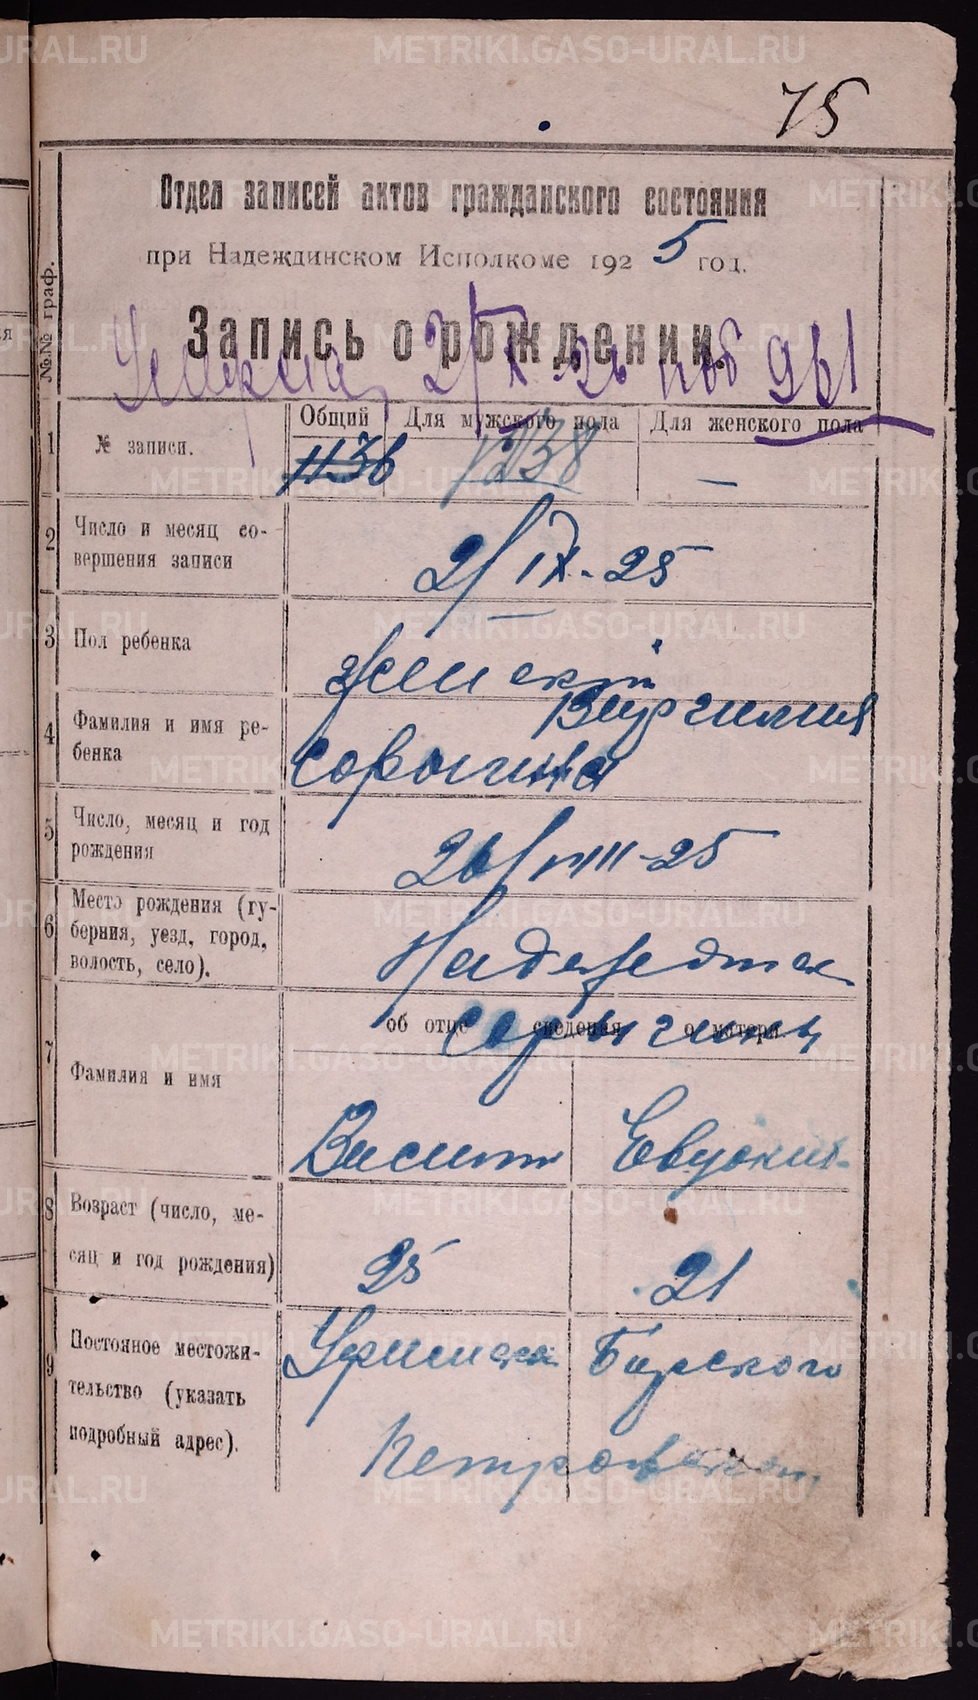 75
Отдел записей актов гражданского состояния
при Надеждинском Исполкоме 1925 год.
Запись о рождении.
Умерла 2/X-26 961
№№ граф.
1 № записи.
Общий Для мужского пола Для женского пола
1136 1238 —
2 Число и месяц со-
вершения записи
2/IX-25
3 Пол ребенка
женский
4 Фамилия и имя ре-
бенка
Виргиния
Сорыгина
5 Число, месяц и год
рождения
26/VIII-25
6 Место рождения (гу-
берния, уезд, город,
волость, село).
7 Фамилия и имя
об отце сведения о матери.
Сорыгины
Василий Евдокия
8 Возраст (число, ме-
сяц и год рождения)
25 21
9 Постоянное местожи-
тельство (указать
подробный адрес).
Уфимская Бирского
METRIKI.GASO-URAL.RU